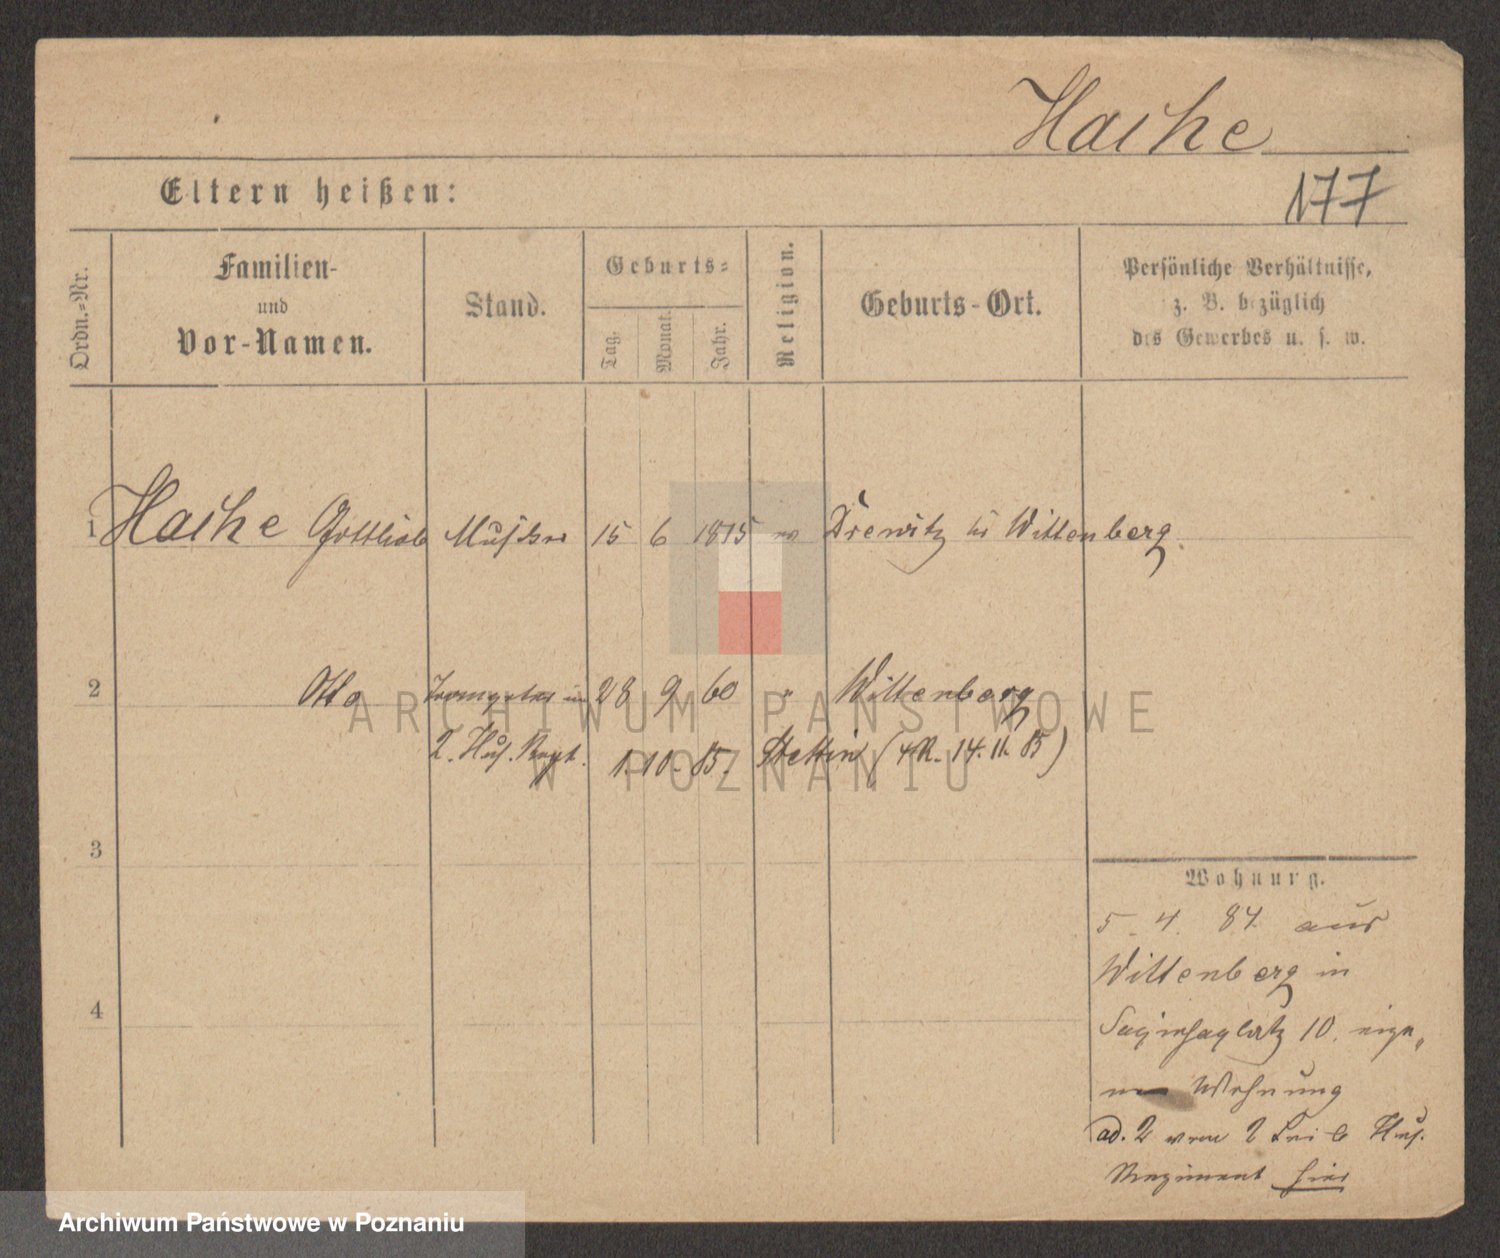 Hache
177
Eltern heißen:
Ordn.-Nr.
Familien-
und
Vor-Namen.
Stand.
Geburts-
Tag.
Monat.
Jahr.
Religion.
Geburts-Ort.
Persönliche Verhältnisse,
z. B. bezüglich
des Gewerbes u. s. w.
1 Hache Gottlieb 15 6 1815 ev Drewitz Wittenberg
2 Otto Trompeter im 28 9 60 " Wittenberg
2. Hus. Regt. 1. 10. 85. Stettin (4R. 14. 11. 85)
3
4
Wohnung.
5. 4. 84. aus
Wittenberg in
Sapiehaplatz 10. eige„
ne Wohnung
ad. 2 vom 2 Leib Hus.
Regiment hier
ARCHIWUM PAŃSTWOWE
W POZNANIU
Archiwum Państwowe w Poznaniu